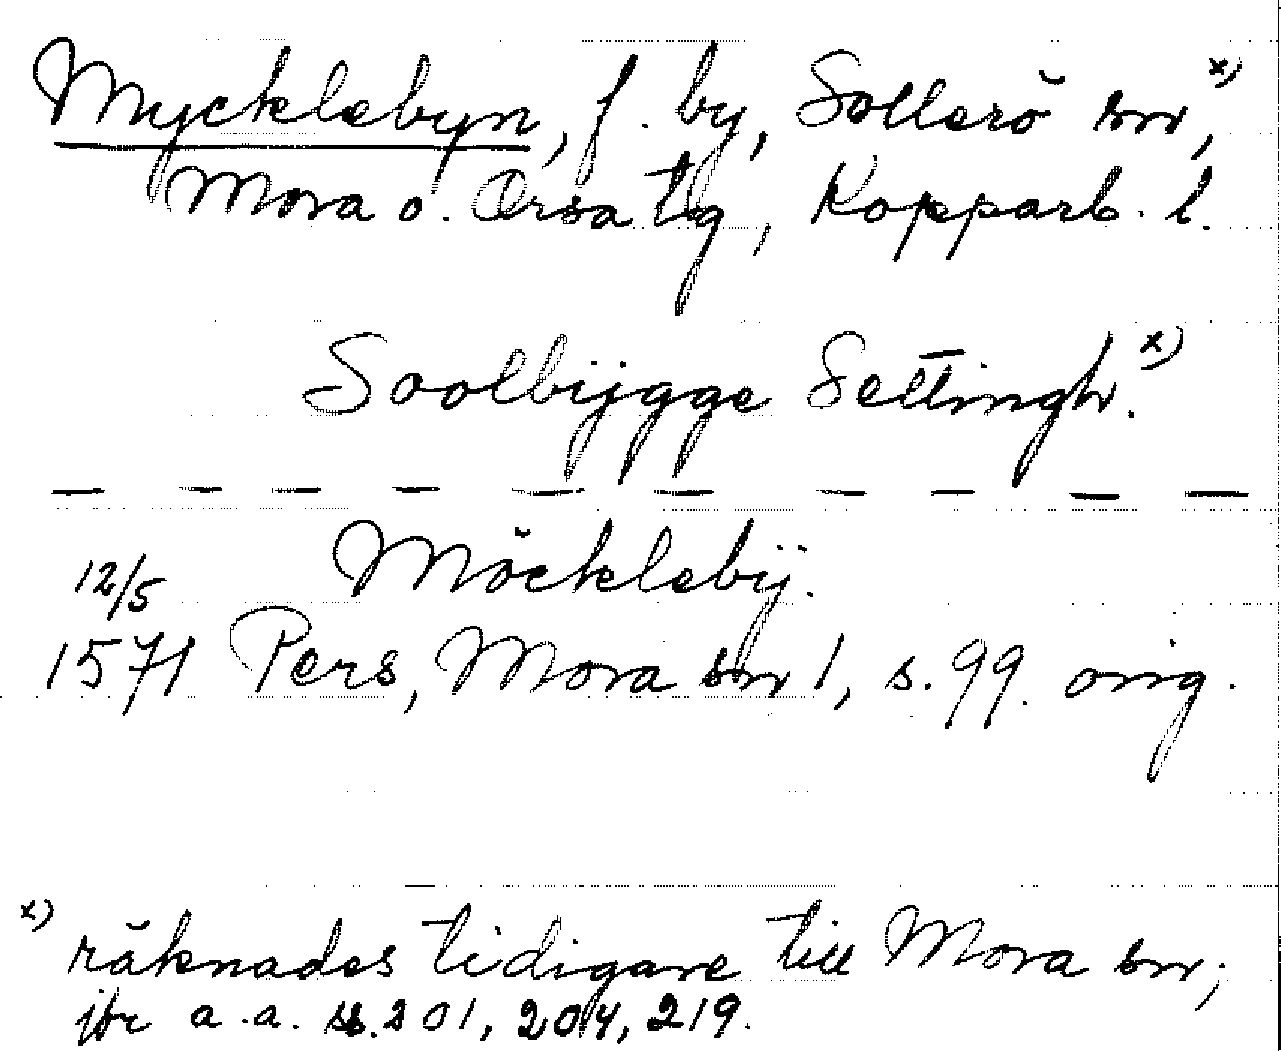 Mycklebyn, f. by, Sollerö sn,x)
Mora o. Orsa tg, Kopparb. l.
Soolbijgge Settingh.x)
— — — — — — — — — —
Möcklebÿ.
12/5
1571 Pers, Mora sn 1, s. 99. orig.
x) räknades tidigare till Mora sn;
jfr a.a. ss. 201, 204, 219.